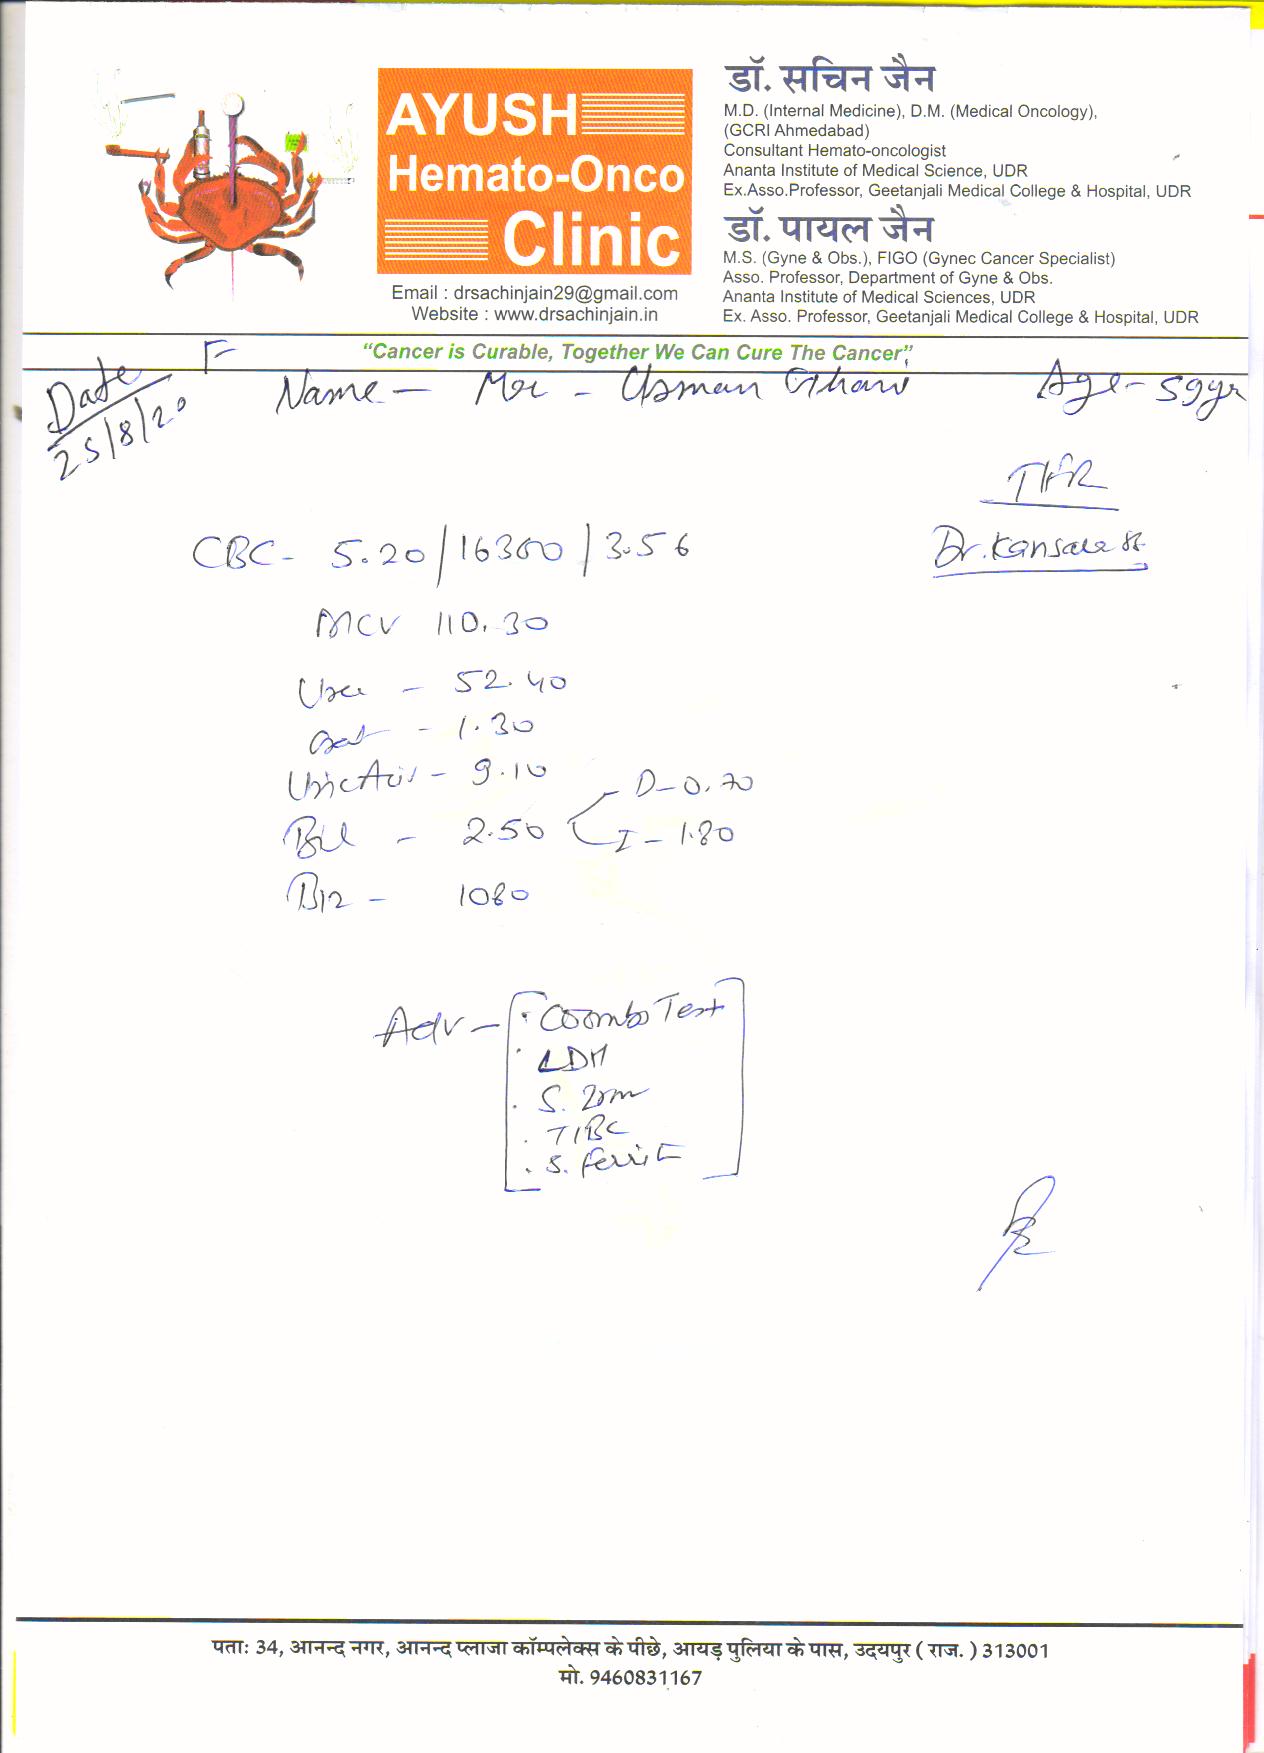 AYUSH
Hemato-Onco
Clinic
Email : drsachinjain29@gmail.com
Website : www.drsachinjain.in
डॉ. सचिन जैन
M.D. (Internal Medicine), D.M. (Medical Oncology),
(GCRI Ahmedabad)
Consultant Hemato-oncologist
Ananta Institute of Medical Science, UDR
Ex.Asso.Professor, Geetanjali Medical College & Hospital, UDR
डॉ. पायल जैन
M.S. (Gyne & Obs.), FIGO (Gynec Cancer Specialist)
Asso. Professor, Department of Gyne & Obs.
Ananta Institute of Medical Sciences, UDR
Ex. Asso. Professor, Geetanjali Medical College & Hospital, UDR
“Cancer is Curable, Together We Can Cure The Cancer”
Date
25/8/20
Name - Mr - Usman Ghani Age - 59yr
Dr. Kansara
CBC - 5.20/16300/3.56
MCV 110.30
Urea - 52.40
- 1.30
Uric Acid - 9.10
D - 0.70
Bil - 2.50
I - 1.80
B12 - 1080
Adv - Coombs Test
LDH
S. Iron
TIBC
S. Ferrit
पताः 34, आनन्द नगर, आनन्द प्लाजा कॉम्पलेक्स के पीछे, आयड़ पुलिया के पास, उदयपुर ( राज. ) 313001
मो. 9460831167